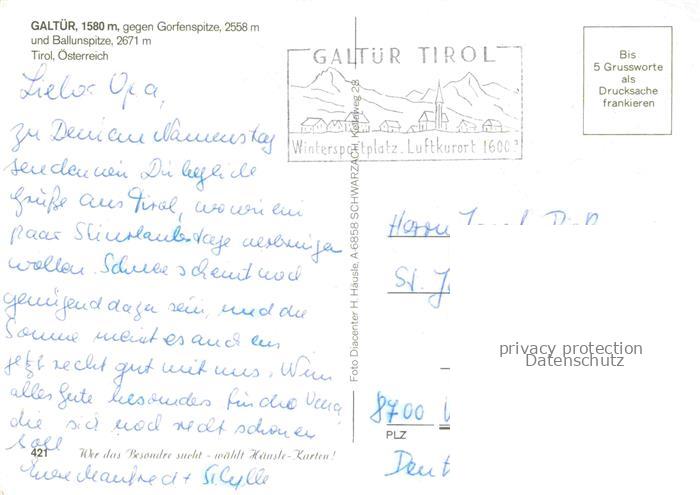 GALTÜR, 1580 m, gegen Gorfenspitze, 2558 m
und Ballunspitze, 2671 m
Tirol, Österreich
Lieber Opa,
zu Deinem Namenstag
senden wir Dir herzliche
Grüße aus Tirol, wo wir ein
paar Skiurlaubstage verbringen
wollen. Schnee scheint noch
genügend da zu sein, und die
Sonne meint es auch bis
jetzt recht gut mit uns.
alles Gute besonders für die
die sich noch recht schonen
soll
Eure Manfred + Sibylle
421
Wer das Besondre sucht - wählt Häusle-Karten!
Foto Diacenter H. Häusle, A-6858 SCHWARZACH, Kellaweg 28
GALTÜR TIROL
Wintersportplatz. Luftkurort 1600
Bis
5 Grussworte
als
Drucksache
frankieren
Herrn
St. J
privacy protection
Datenschutz
8700
PLZ